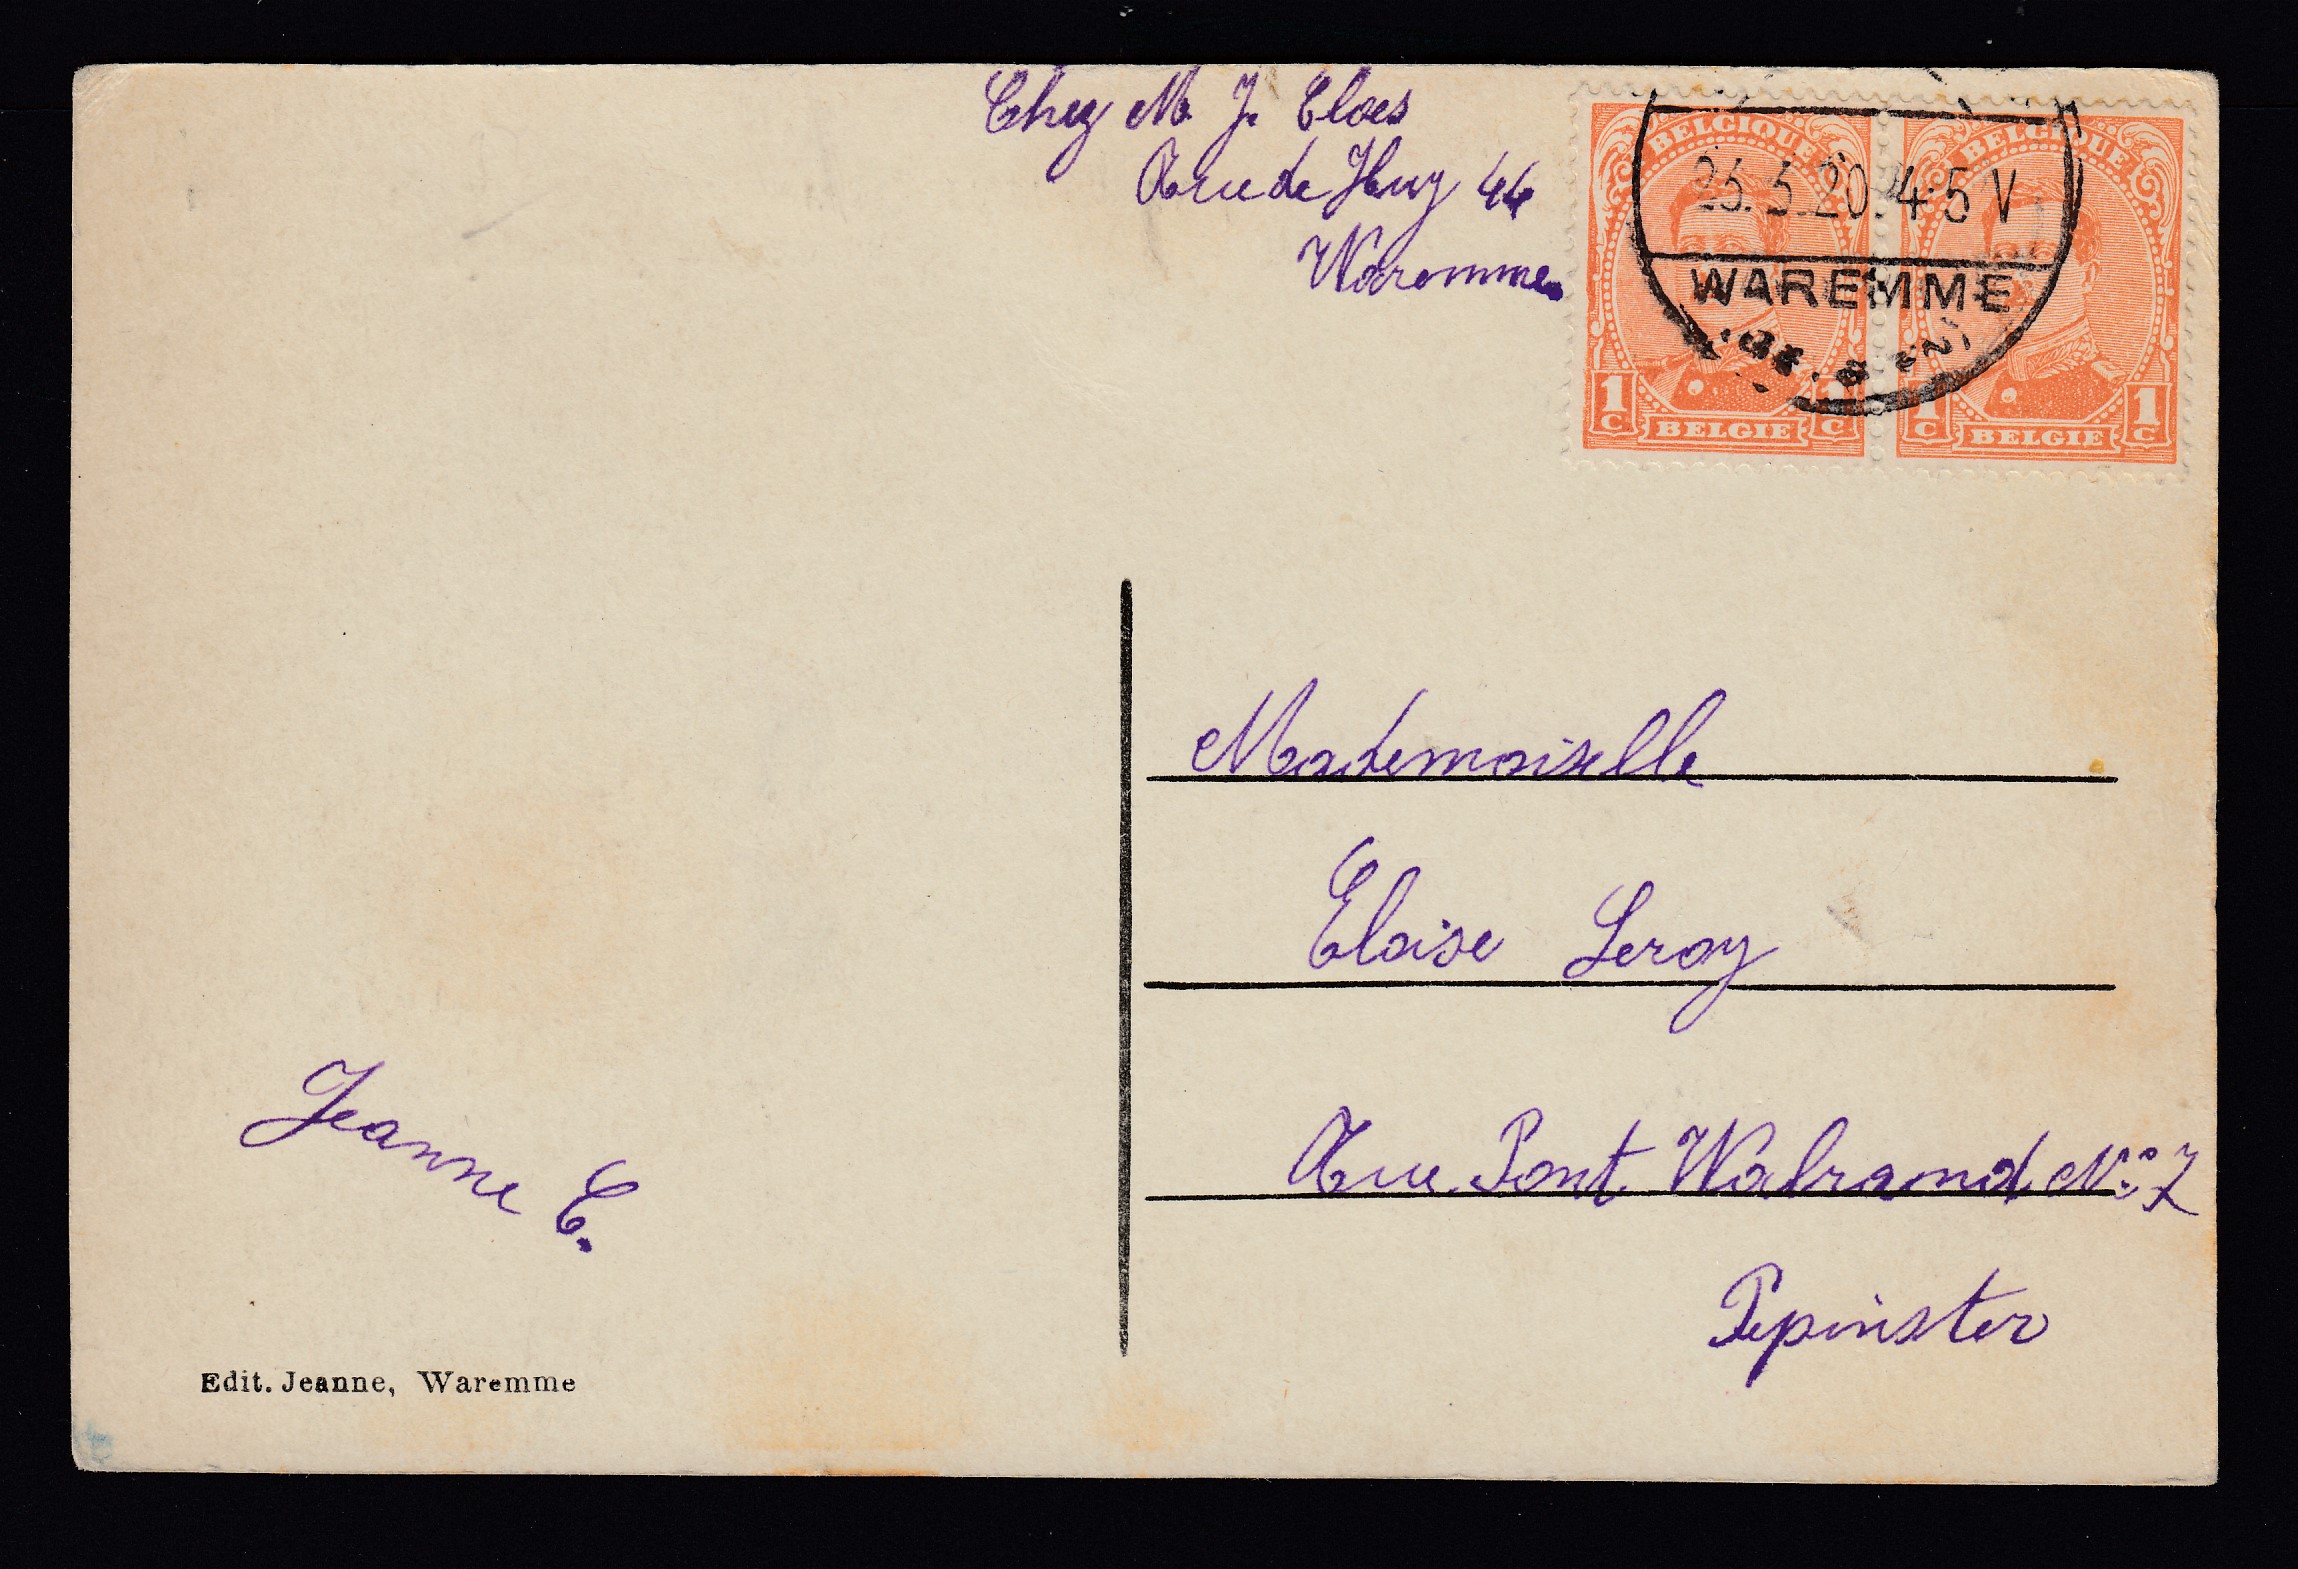 Chez M. J. Cloes
Rue de Huy 44
Waremme
BELGIQUE BELGIQUE
20.4-5 V
WAREMME
1 C BELGIE 1 C 1 C BELGIE 1 C
Mademoiselle
Eloise Leroy
Rue Pont Walrand N° 7
Pepinster
Jeanne C.
Edit. Jeanne, Waremme